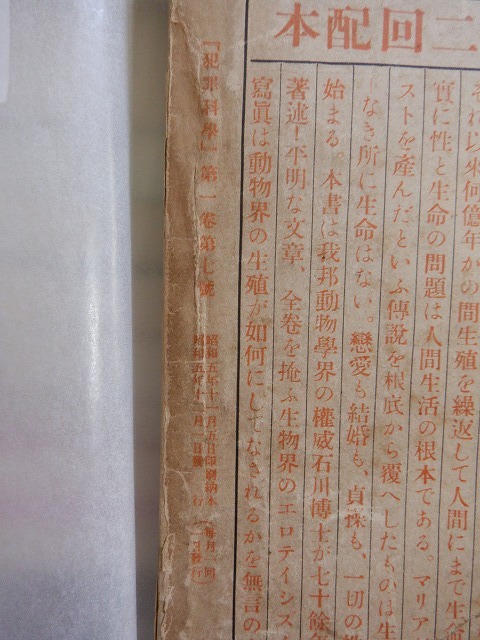 二回配本
それ以来何億年かの間生殖を繰返して人間にまで生
實に性と生命の問題は人間生活の根本である。マリア
ストを產んだといふ傳說を根底から覆へしたものは生
なき所に生命はない。戀愛も結婚も、貞操も、一切の
始まる。本書は我邦動物學界の權威石川博士が七十餘
著述！平明な文章、全卷を掩ふ生物界のエロテイシズ
寫眞は動物界の生殖が如何にしてなされるかを無言の
『犯罪科學』第一卷第七號
昭和五年十一月五日印刷納本
昭和五年十二月一日發行
每月一回
一日發行